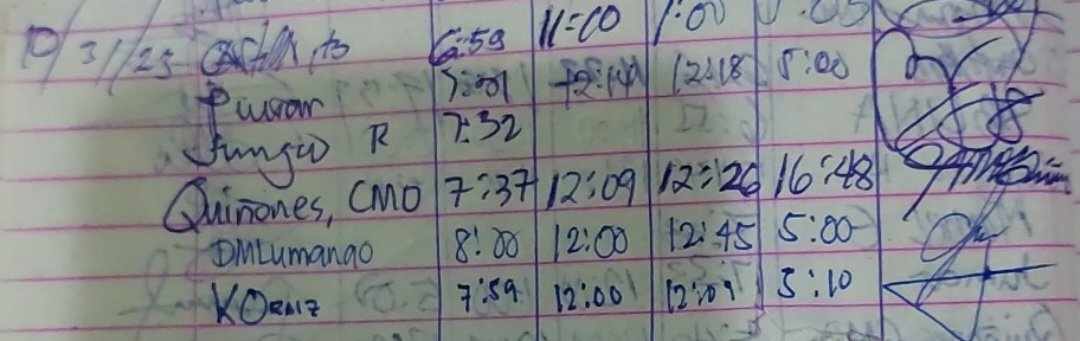 10/31/25 6:59 11:00 1:00
Puwran 7:01 12:14 12:18 5:00
Jungco R 7:32
Quiñones, CMO 7:37 12:09 12:26 16:48
DMLumango 8:00 12:00 12:45 5:00
KOrniz 7:59 12:00 12:09 5:10